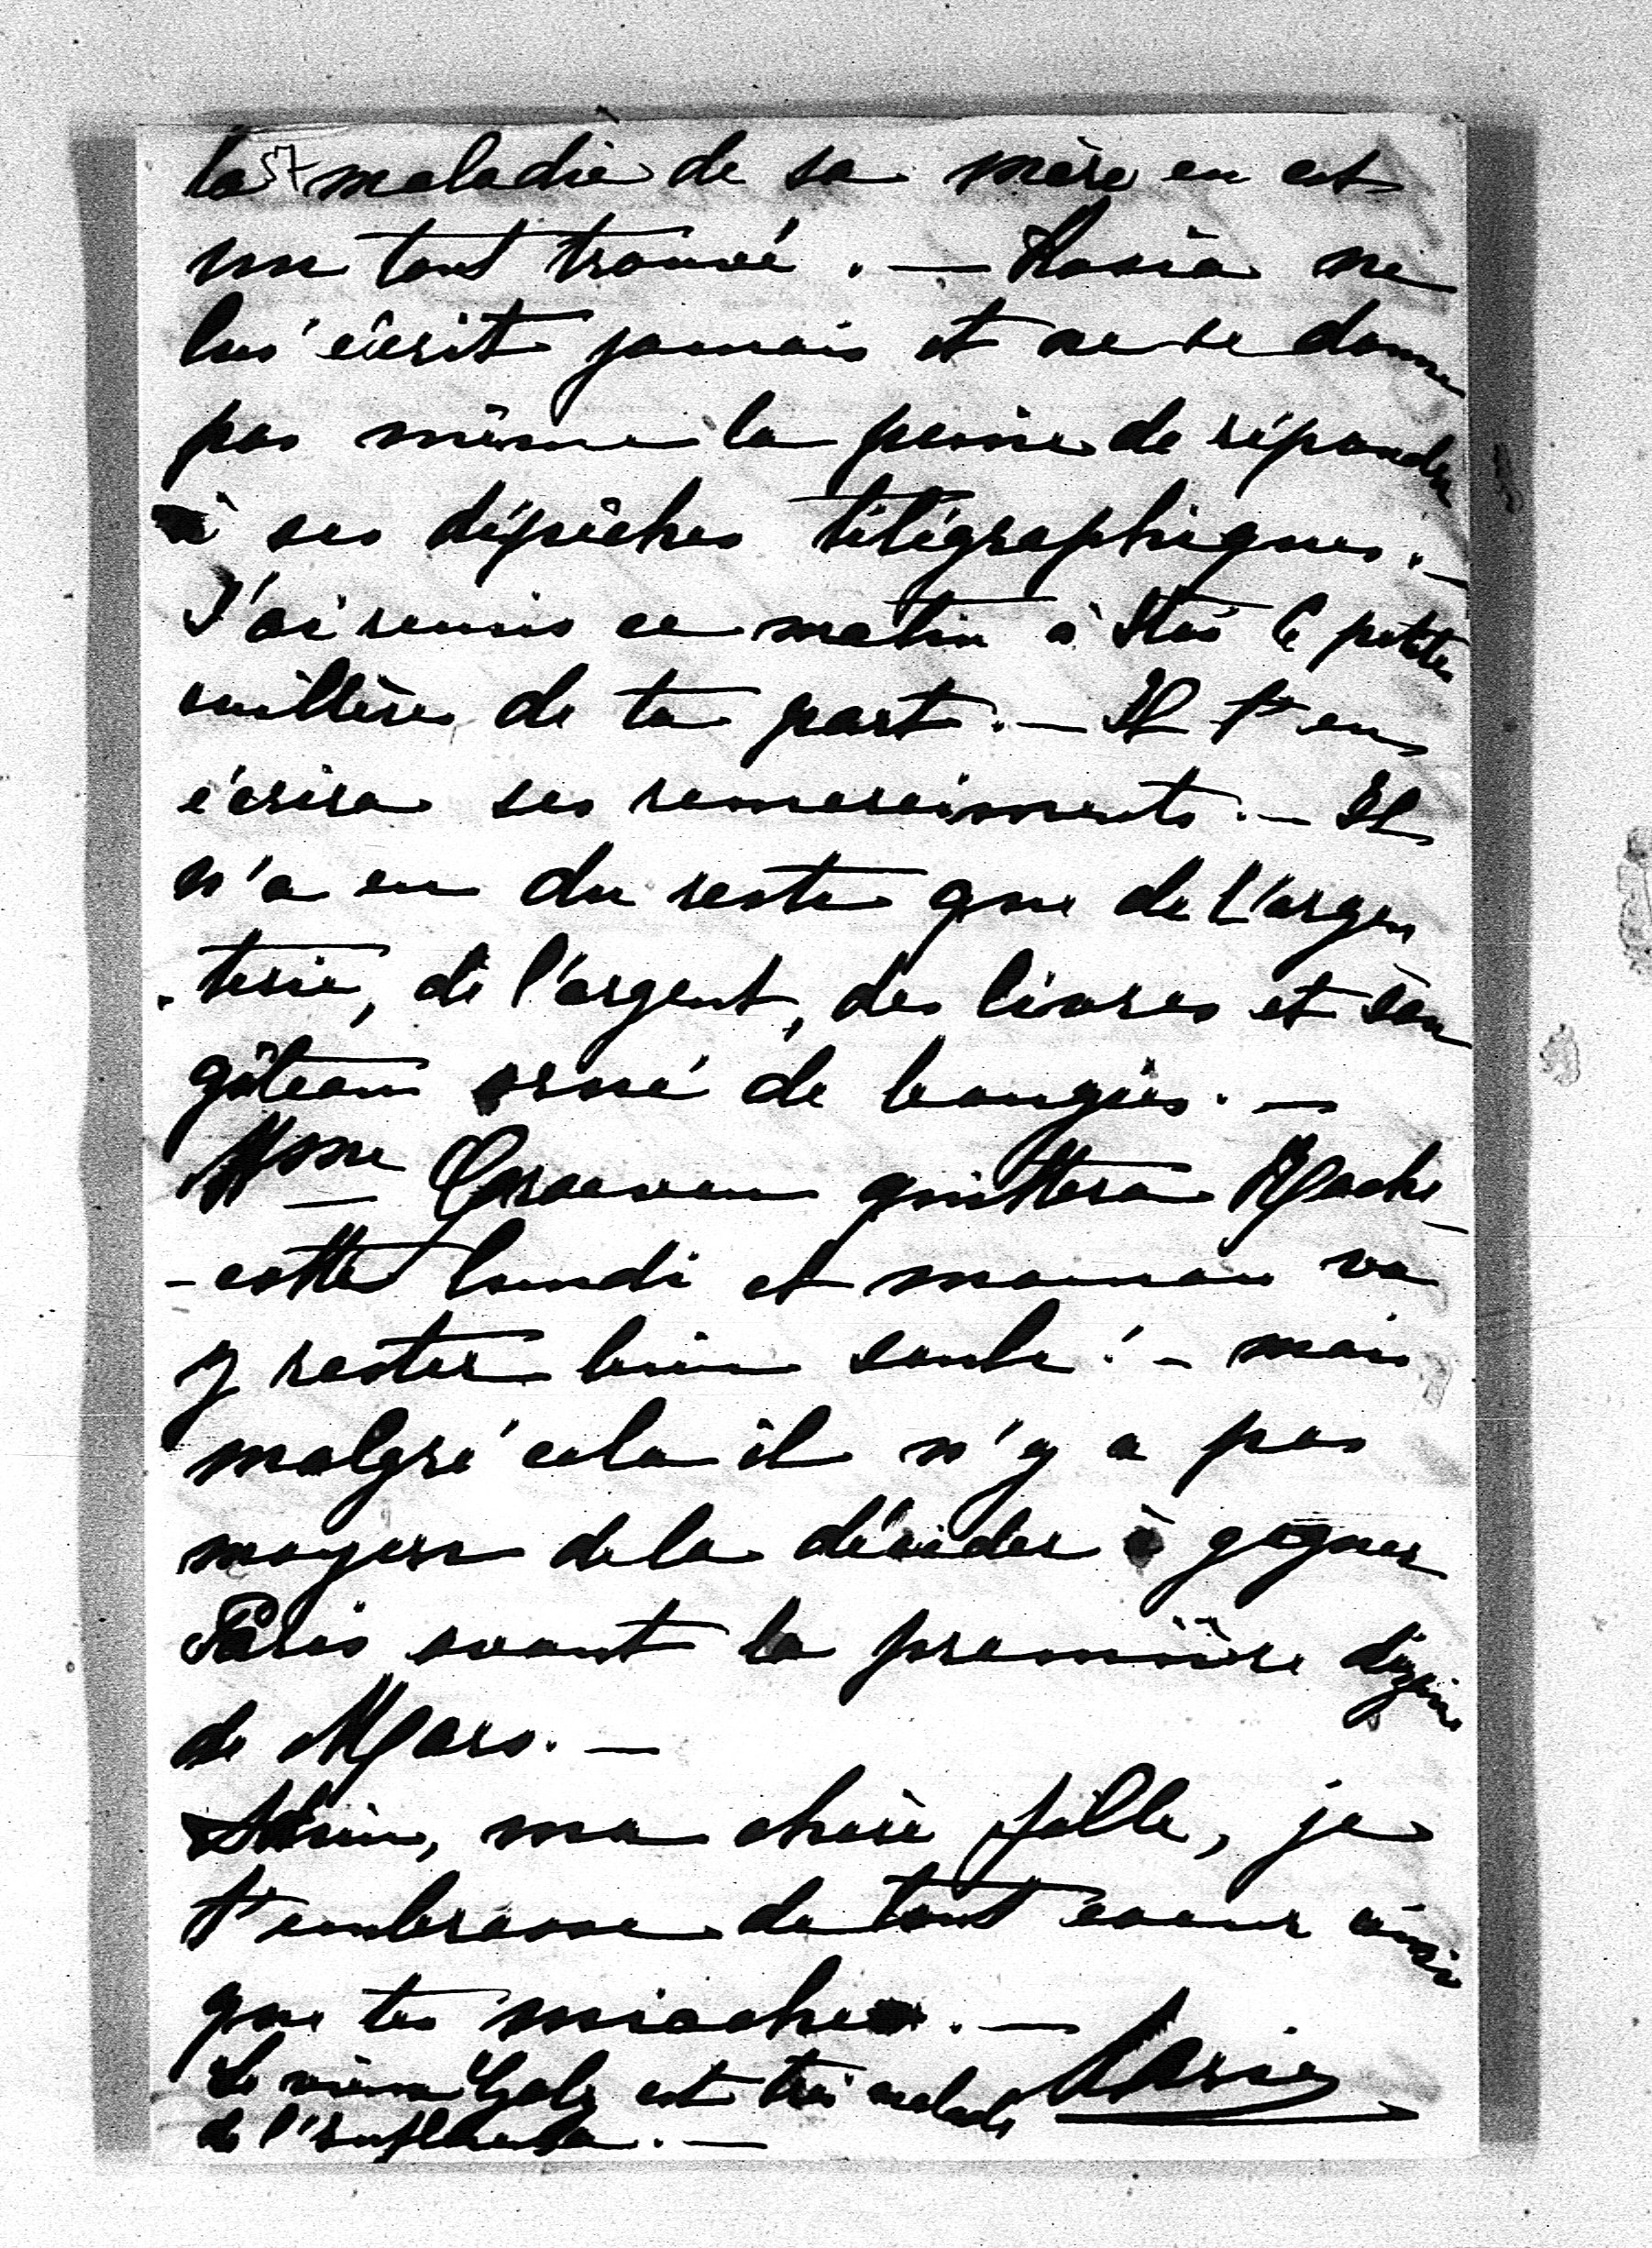 la maladie de sa mère en est
un tout trouvé. — Rosia ne
lui écrit jamais et ne se donne
pas même la peine de répondre
à ses dépêches télégraphiques. —
J'ai remis ce matin à Stas la petite
cuillère de ta part. — Il t'en
écrira ses remerciments. — Il
n'a eu du reste que de l'argen
-terie, de l'argent, des livres et son
gâteau orné de bougies. —
Mme quittera Roche-
-cotte lundi et maman va
y rester bien seule! — mais
malgré cela il n'y a pas
moyen de la décider à gagner
Paris avant la première dizaine
de Mars. —
Adieu, ma chère fille, je
t'embrasse de tout coeur ainsi
que tes mioches. —
Marie
Le vieux est très malade
de l'influenza. —